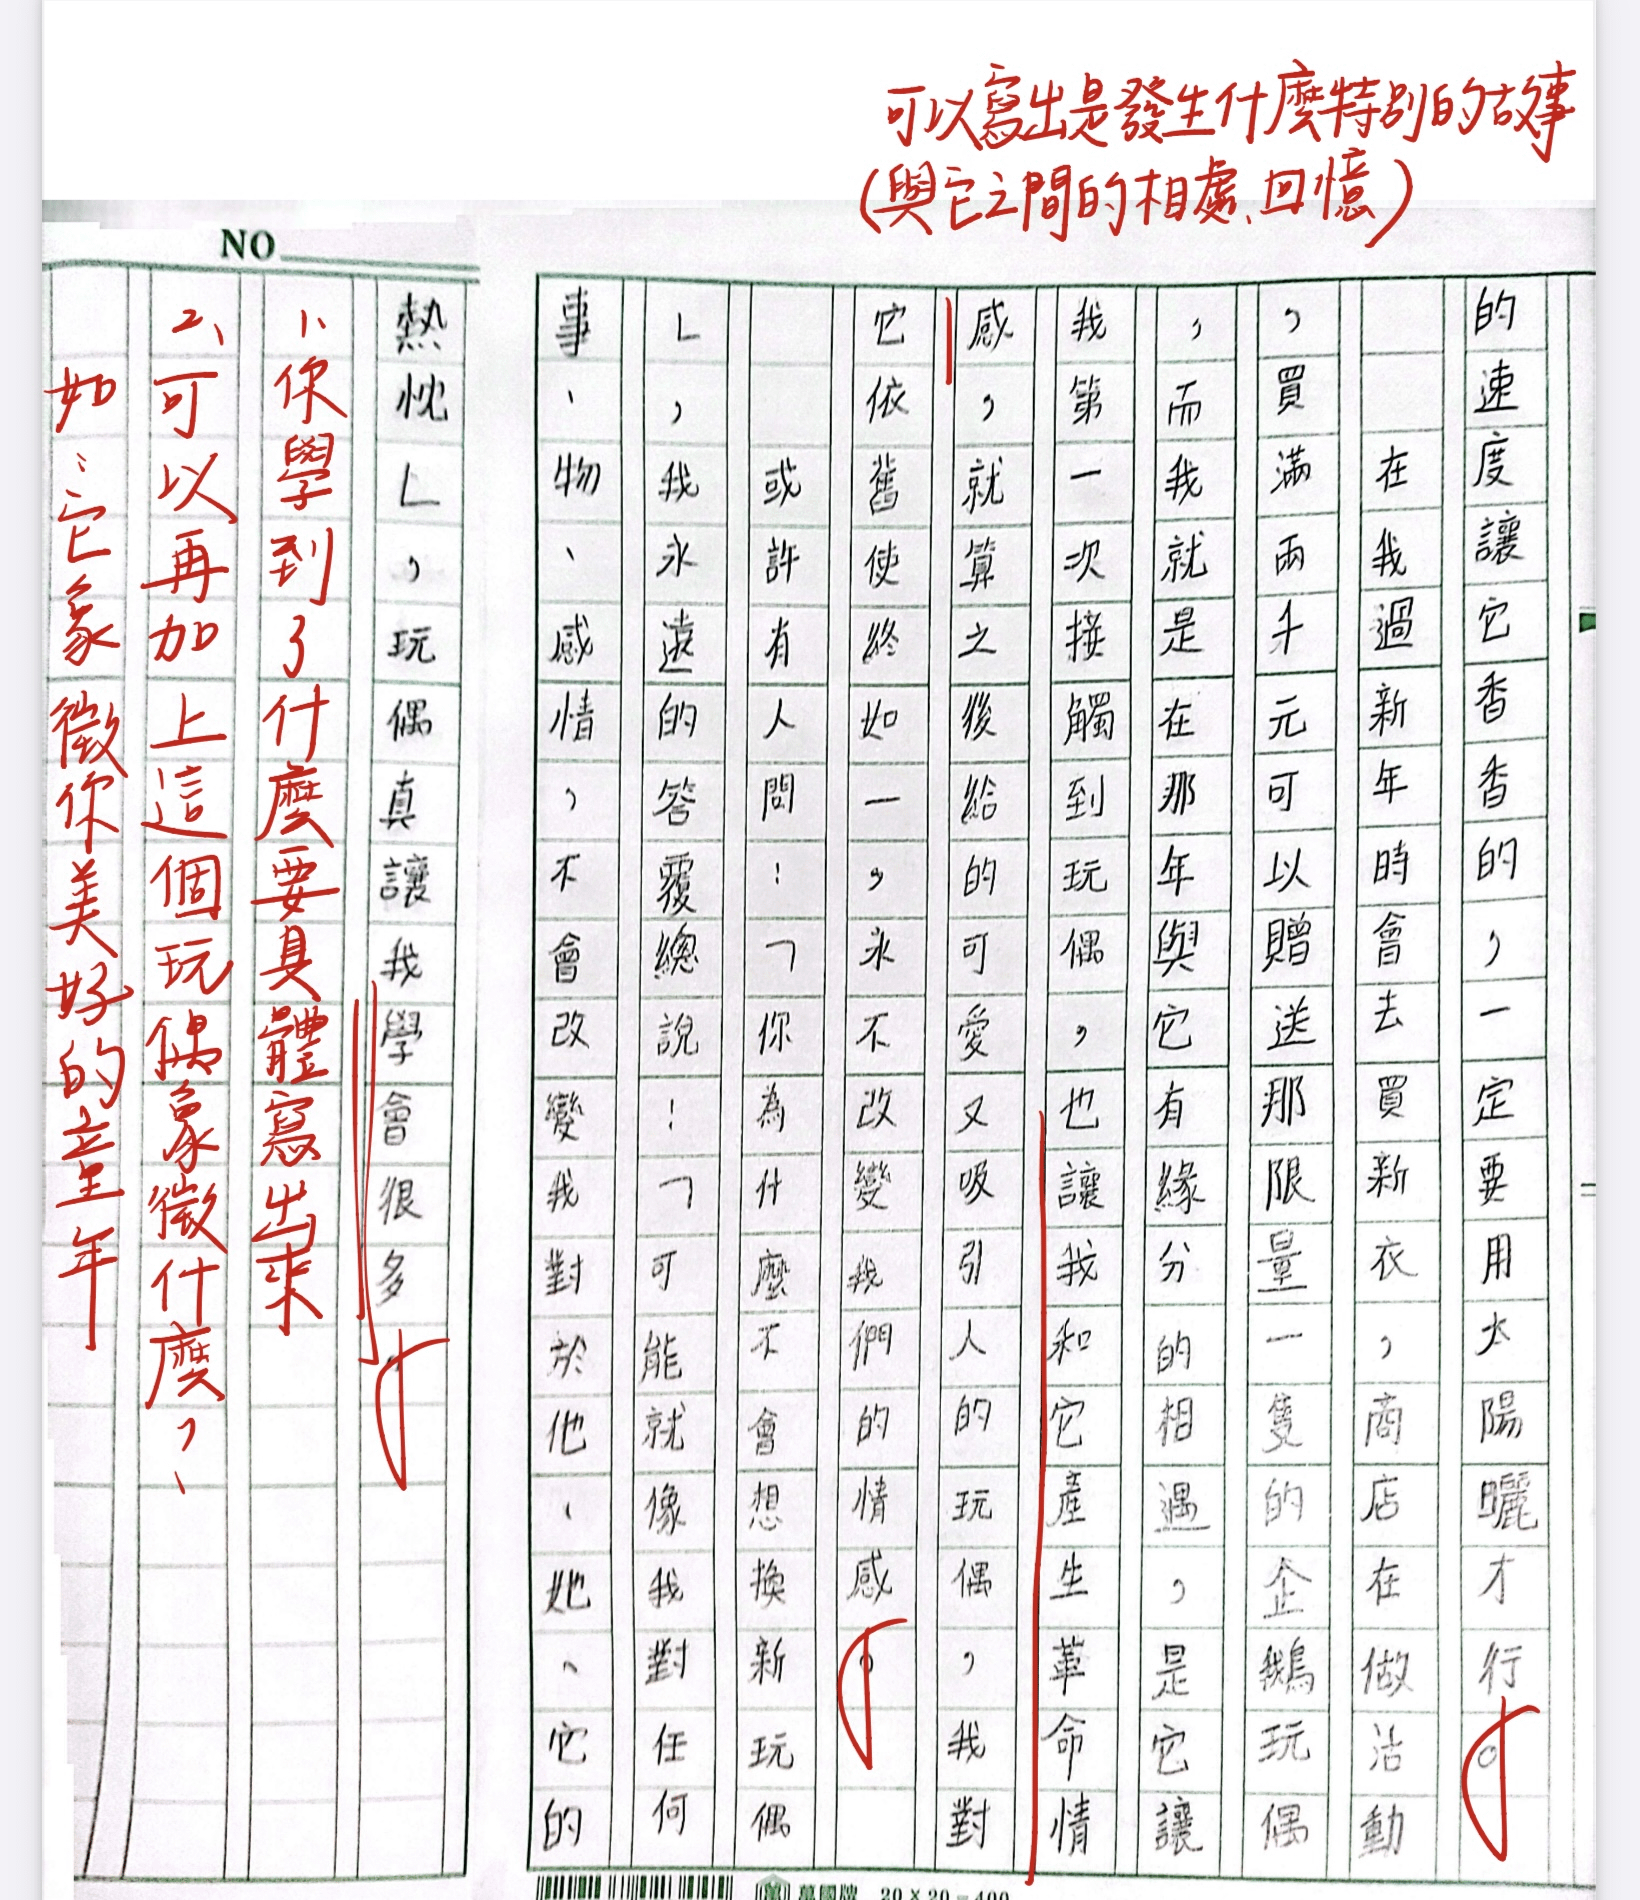 可以寫出是發生什麼特別的故事
(與它之間的相處、回憶)
的速度讓它香香的，一定要用太陽曬才行。
在我過新年時會去買新衣，商店在做活動
，買滿兩千元可以贈送那限量一隻的企鵝玩偶
，而我就是在那年與它有緣分的相遇，是它讓
我第一次接觸到玩偶，也讓我和它產生革命情
感，就算之後給的可愛又吸引人的玩偶，我對
它依舊使終如一，永不改變我們的情感。
或許有人問：「你為什麼不會想換新玩偶
」，我永遠的答覆總說：「可能就像我對任何
事、物、感情，不會改變我對於他、她、它的
NO
熱忱」，玩偶真讓我學會很多。
1、你學到了什麼要具體寫出來
2、可以再加上這個玩偶象徵什麼，
如：它象徵你美好的童年
萬國牌 20×20=400